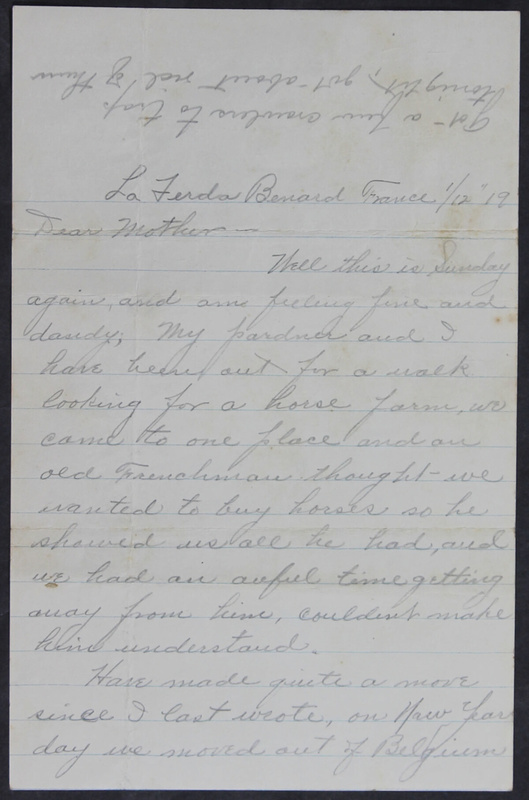 Got a few crawlers to trap
tonight, got about rid of them
La Ferda Benard France 1/12" 19
Dear Mother —
Well this is Sunday
again, and am feeling fine and
dandy; My pardner and I
have been out for a walk
looking for a horse farm, we
came to one place and an
old Frenchman thought we
wanted to buy horses so he
showed us all he had, and
we had an awful time getting
away from him, couldn't make
him understand.
Have made quite a move
since I last wrote, on New Year
day we moved out of Belgium